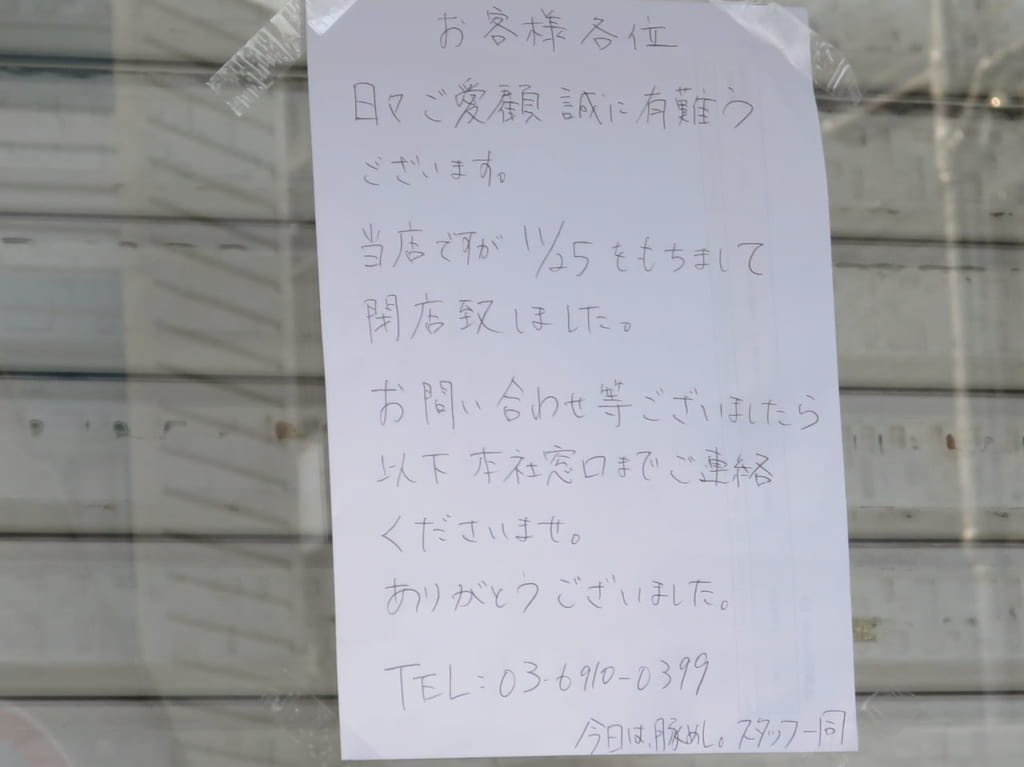 お客様各位
日々ご愛顧誠に有難う
ございます。
当店ですが11/25をもちまして
閉店致しました。
お問い合わせ等ございましたら
以下本社窓口までご連絡
くださいませ。
ありがとうございました。
TEL:03-6910-0399
今日は、豚めし。スタッフ一同